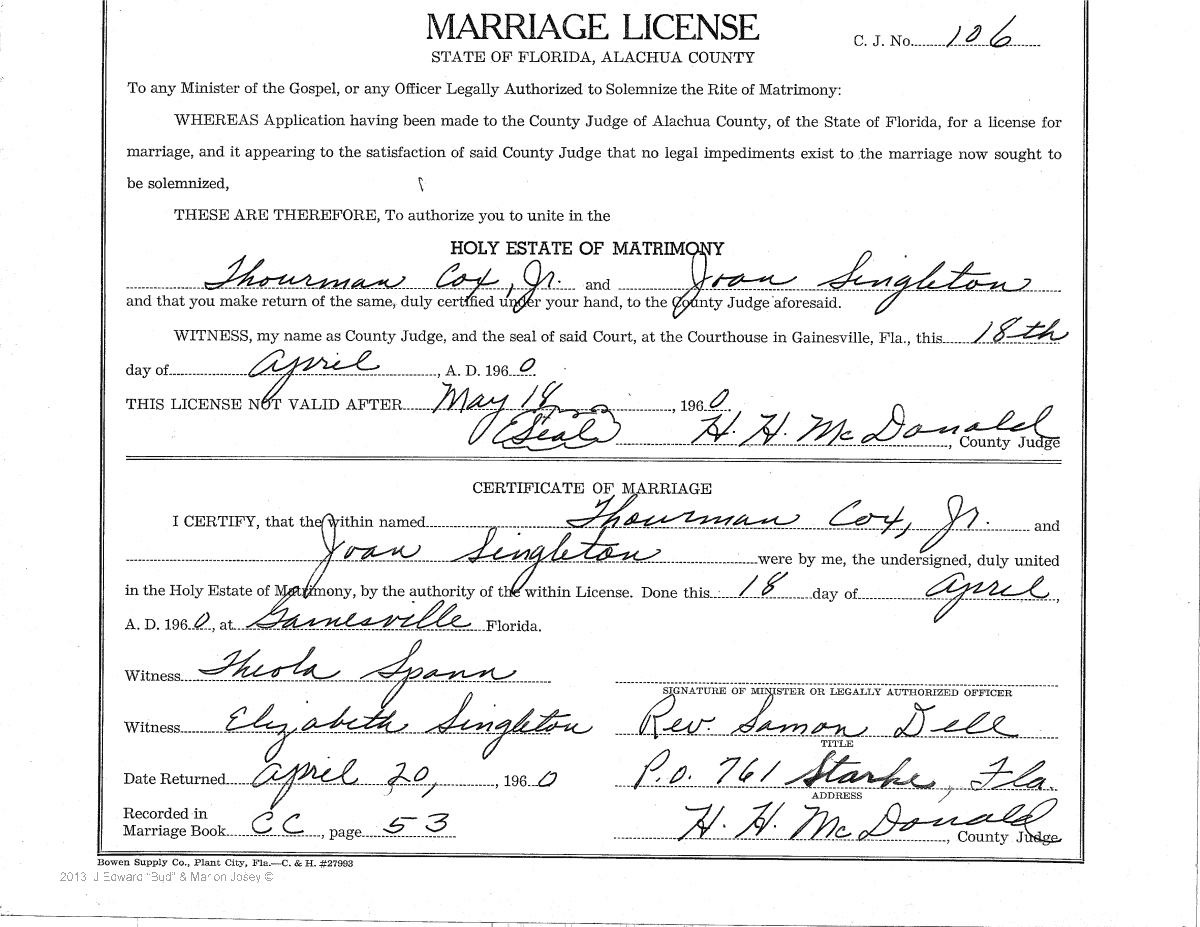 MARRIAGE LICENSE
C. J. No. 106
STATE OF FLORIDA, ALACHUA COUNTY
To any Minister of the Gospel, or any Officer Legally Authorized to Solemnize the Rite of Matrimony:
WHEREAS Application having been made to the County Judge of Alachua County, of the State of Florida, for a license for
marriage, and it appearing to the satisfaction of said County Judge that no legal impediments exist to the marriage now sought to
be solemnized,
THESE ARE THEREFORE, To authorize you to unite in the
HOLY ESTATE OF MATRIMONY
Thourman Cox, Jr. and Joan Singleton
and that you make return of the same, duly certified under your hand, to the County Judge aforesaid.
WITNESS, my name as County Judge, and the seal of said Court, at the Courthouse in Gainesville, Fla., this 18th
day of April, A. D. 1960.
THIS LICENSE NOT VALID AFTER May 18, 1960
(Seal) H. H. McDonald, County Judge
CERTIFICATE OF MARRIAGE
I CERTIFY, that the within named Thourman Cox, Jr. and
Joan Singleton were by me, the undersigned, duly united
in the Holy Estate of Matrimony, by the authority of the within License. Done this 18 day of April,
A. D. 1960, at Gainesville Florida.
Witness Theola Spann
SIGNATURE OF MINISTER OR LEGALLY AUTHORIZED OFFICER
Witness Elizabeth Singleton Rev. Samon Dell
TITLE
Date Returned April 20, 1960 P.O. 761 Starke, Fla.
ADDRESS
Recorded in
Marriage Book CC, page 53 H. H. McDonald, County Judge
Bowen Supply Co., Plant City, Fla.—C. & H. #27993
2013 J Edward "Bud" & Marion Josey ©